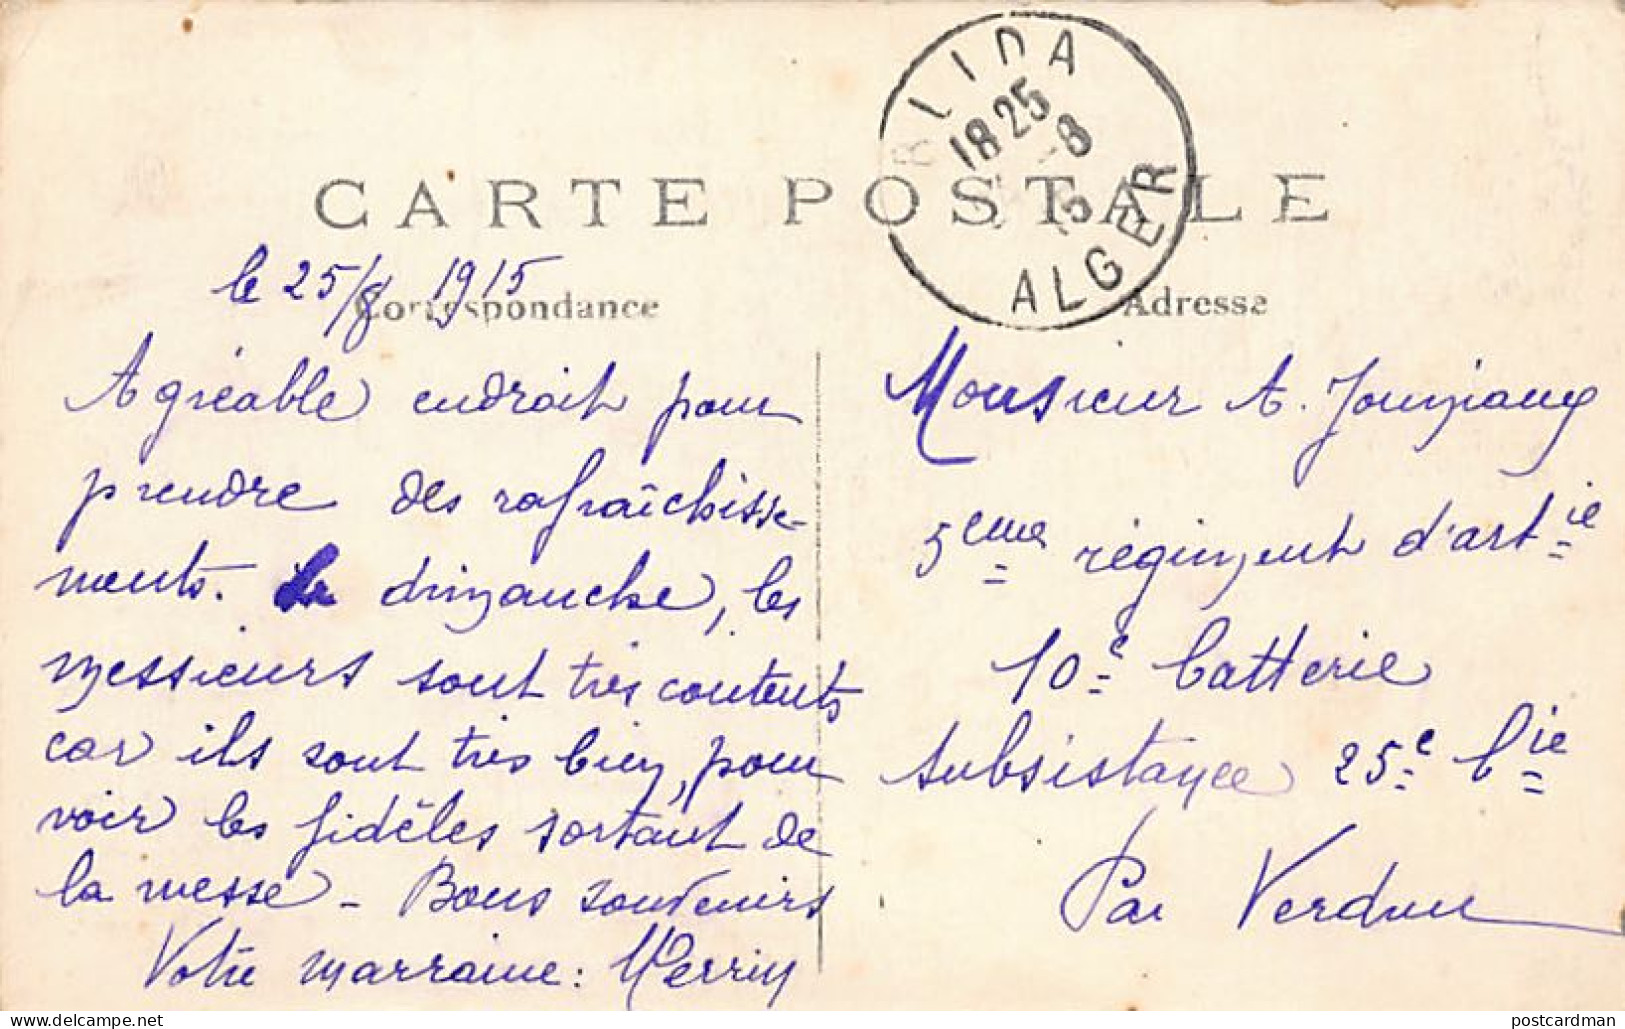 BLIDA
18 25
-8
15
ALGER
CARTE POSTALE
Correspondance
Adresse
le 25/8 1915
Agréable endroit pour
prendre des rafraîchisse-
ments. Le dimanche, les
messieurs sont très contents
car ils sont très bien, pour
voir les fidèles sortant de
la messe - Bons souvenirs
Votre marraine:
Monsieur A.
5eme régiment d'artie
10e batterie
subsistance 25e bie
Par Verdun
postcardman